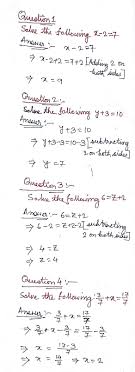 Question 1
Solve the following x-2=7
Answer:-
x-2=7
⇒ x-2+2=7+2 [Adding 2 on
both sides]
⇒ x=9
Question 2:-
Solve the following y+3=10
Answer:-
y+3=10
⇒ y+3-3=10-3 [subtracting
on both sides]
⇒ y=7
Question 3:-
Solve the following 6=z+2
Answer:- 6=z+2
⇒ 6-2=z+2-2 [subtracting
2 on both sides]
⇒ 4=z
⇒ z=4
Question 4:-
Solve the following 3/7+x=17/7
Answer:- 3/7+x=17/7
⇒ 3/7+x-3/7=17/7-3/7
⇒ x=17-3/7
⇒ x=14/7 ⇒ x=2